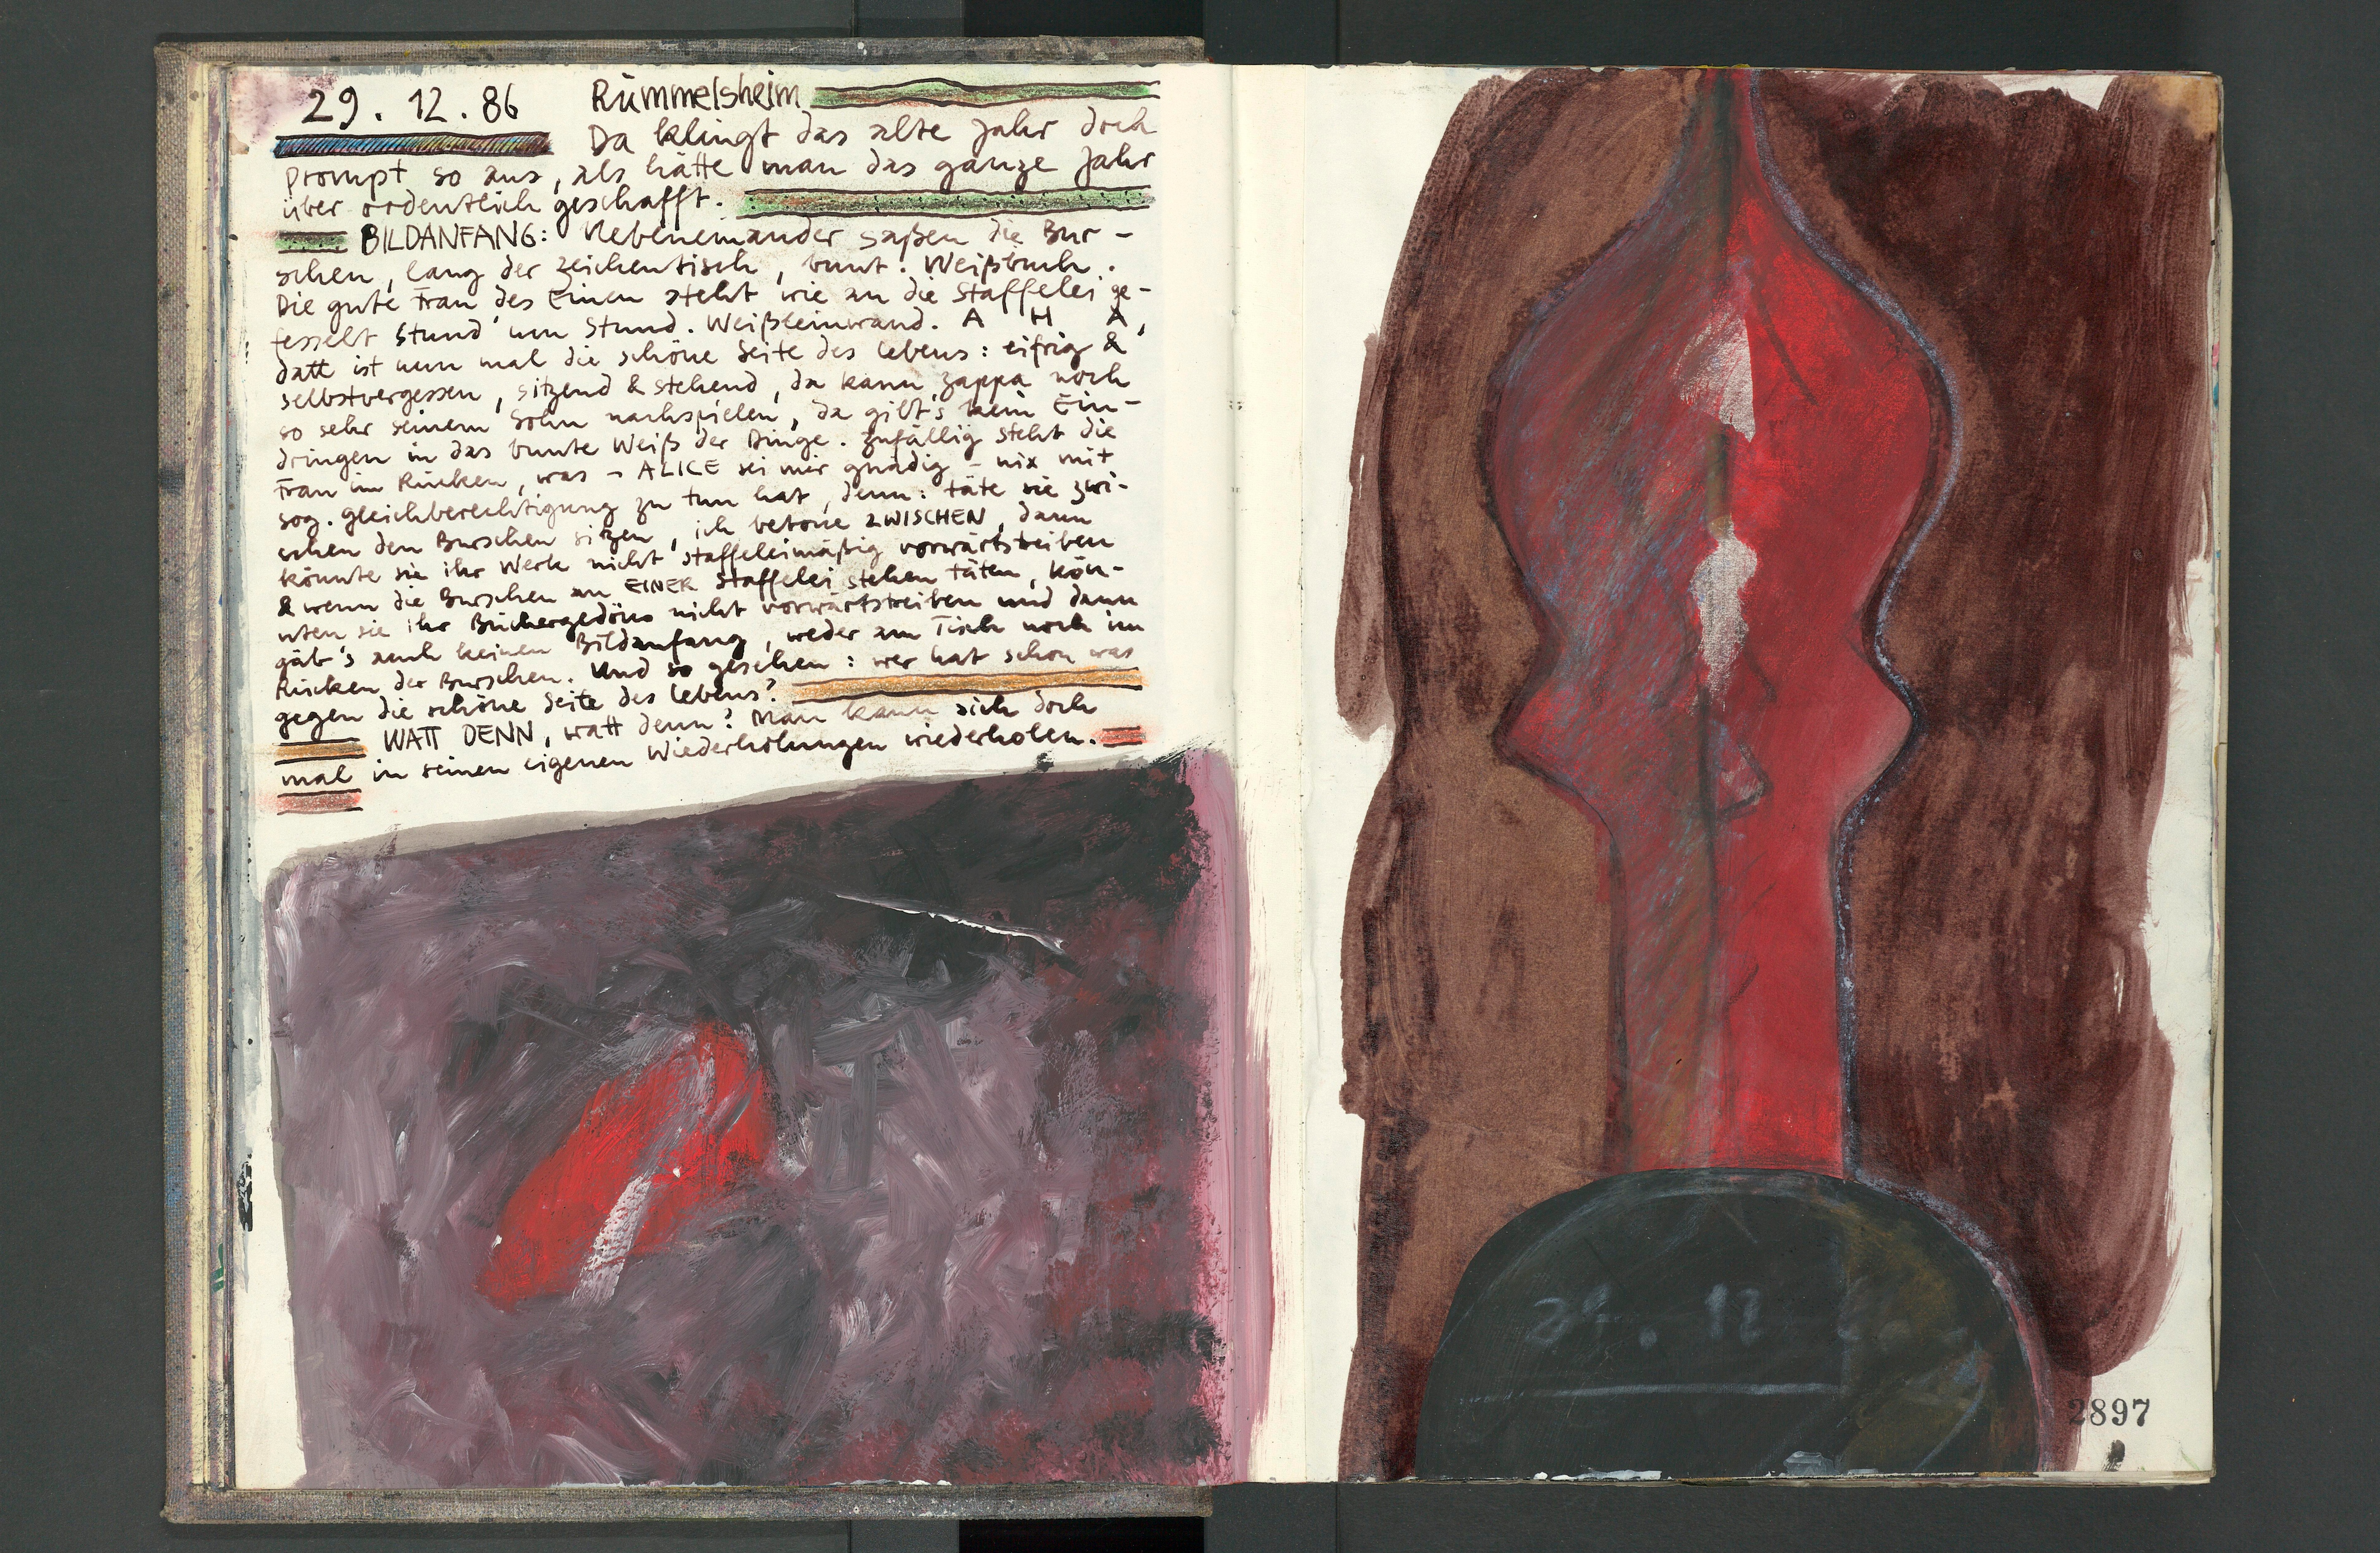 29. 12. 86 Rümmelsheim
Da klingt das alte Jahr doch
prompt so aus, als hätte man das ganze Jahr
über ordentlich geschafft.
BILDANFANG: Nebeneinander saßen die Bur-
schen, lang der Zeichentisch, bunt. Weißbuch.
Die gute Frau des Einen steht wie an die Staffelei ge-
fesselt Stund' um Stund. Weißleinwand. A H A,
datt ist nun mal die schöne Seite des Lebens: eifrig &
selbstvergessen, sitzend & stehend, da kann Zappa noch
so sehr seinem Sohn nachspielen, da gilt's kein Ein-
dringen in das bunte Weiß der Dinge. Zufällig steht die
Frau im Rücken, was - ALICE sei mir gnädig - nix mit
sog. Gleichberechtigung zu tun hat, denn: täte sie zwi-
schen den Burschen sitzen, ich betone ZWISCHEN, dann
könnte sie ihr Werk nicht staffeleimäßig vorwärtstreiben
& wenn die Burschen an EINER Staffelei stehen täten, kön-
nten sie ihr Büchergedöns nicht vorwärtstreiben und dann
gäb's auch keinen Bildanfang, weder am Tisch noch im
Rücken der Burschen. Und so gesehen: wer hat schon was
gegen die schöne Seite des Lebens?
WATT DENN, watt denn? Man kann sich doch
mal in seinen eigenen Wiederholungen wiederholen.
29. 12.
2897